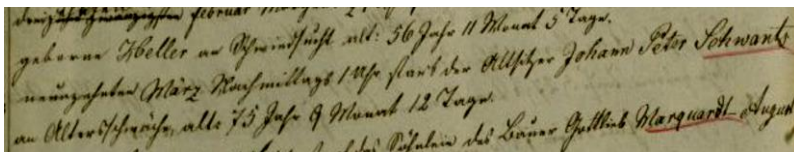 dreizehn februar
geborne Heller an Schwindsucht alt: 56 Jahr 11 Monat 5 Tage.
neunzehnten März Nachmittags 1 Uhr starb der Altsitzer Johann Peter Schwantz
an Altersschwäche, alt: 75 Jahr 9 Monat 12 Tage.
das Söhnlein des Bauer Gottlieb Marquardt August